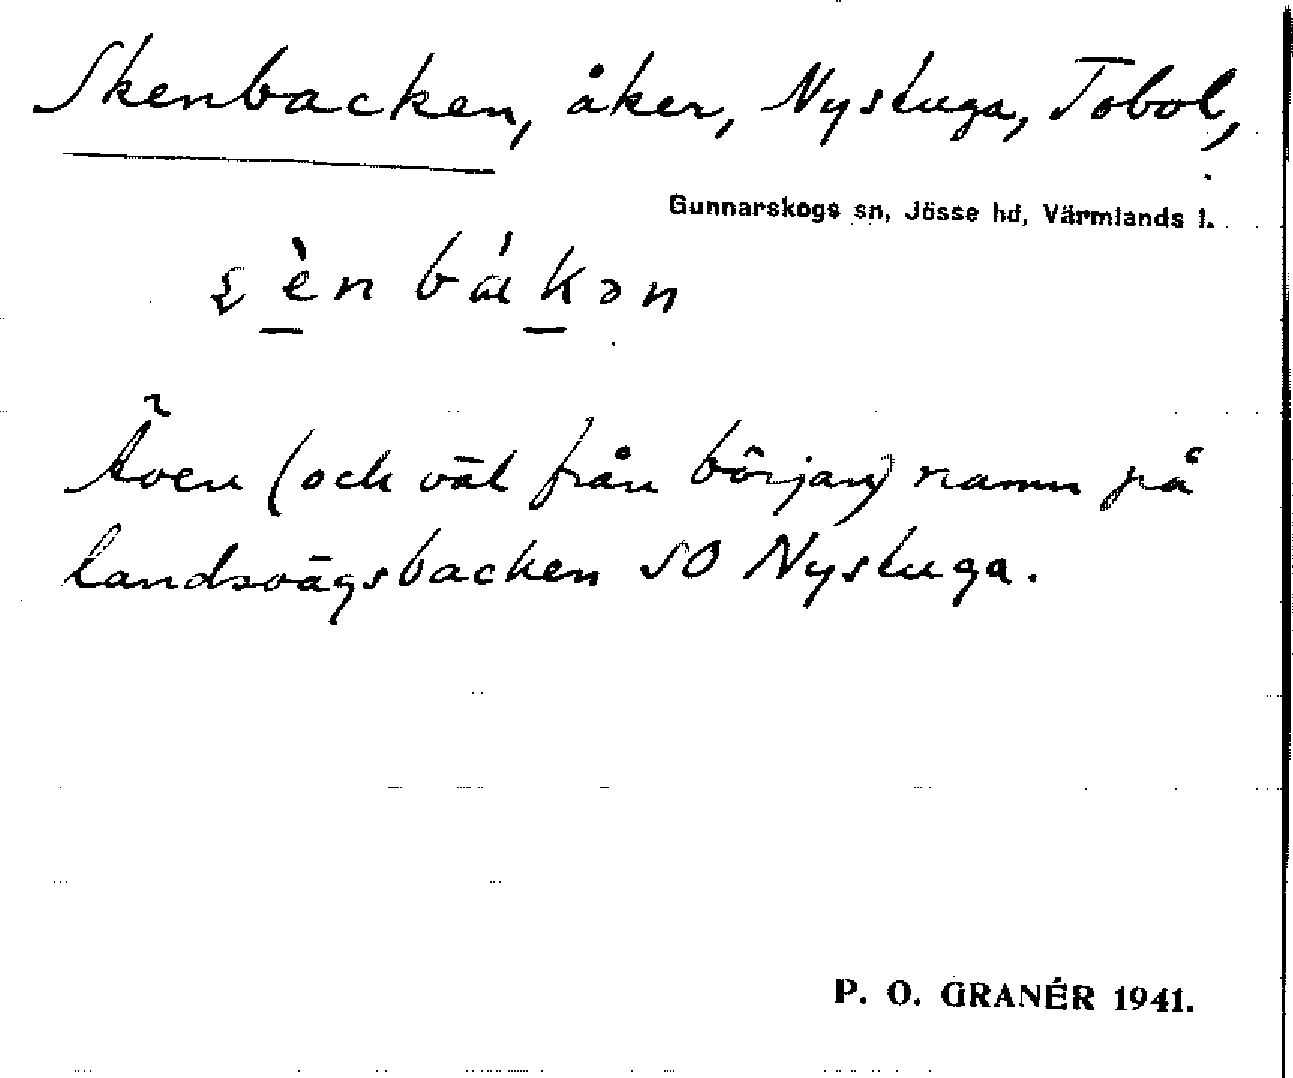 Skenbacken, åker, Nystuga, Tobol,
Gunnarskogs sn, Jösse hd, Värmlands l.
Även (och väl från början) namn på
landsvägsbacken SO Nystuga.
P. O. GRANÉR 1941.